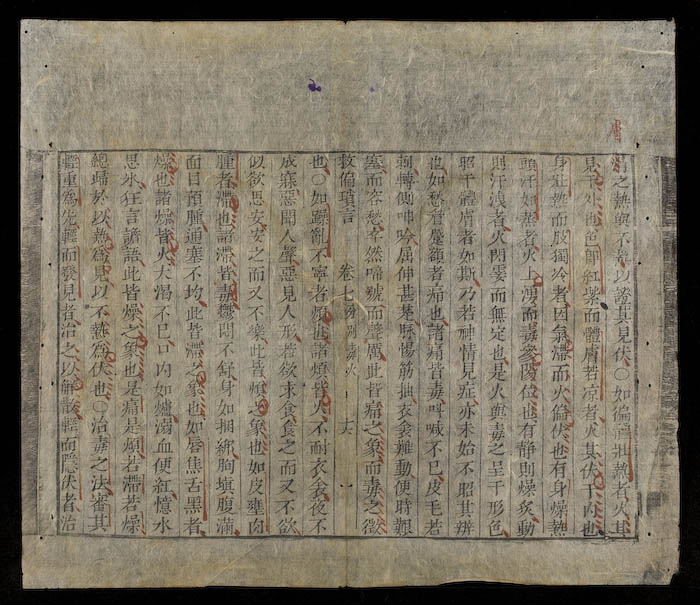 之熱與不熱以證其見伏〇如徧體壯熱者火其
見于外也色即紅紫而體膚若凉者火其伏于內也
身壯熱而肢獨冷者因氣滯而火偏伏也有身燥熱
頭汗如蒸者火上湧而毒參陽位也有靜則燥動
則汗洩者火閃爍而無定也是火與毒之呈于形色
昭于體膚者如斯乃若神情見症亦未始不昭其辨
也如愁眉蹙額者痛也諸痛皆毒呌喊不已皮毛若
轉側呻吟屈伸甚楚腸惕筋抽衣衾難動便時艱
塞而含愁卒然啼號而聲厲此皆痛之象而毒之徵
救偏瑣言 卷七 火 十六
也〇如躁亂不寧者煩也諸煩皆火不耐衣衾夜不
成寐惡聞人聲惡見人形欲求食食之而又不欲
似欲思安安之而又不樂此皆煩之象也如皮壅肉
腫者滯也諸滯皆毒鬱悶不舒身如捆綁胸塡腹滿
面目預腫通塞不均此皆滯之象也如唇焦舌黑者
燥也諸燥皆火大渴不已口內如爐溺血便紅憶水
思氷狂言譫語此皆燥之象也是痛是煩若滯若燥
總歸於以熱爲見以不熱爲伏也〇治毒之法審其
輕重爲先輕而發見者治之以解散輕而隱伏者治